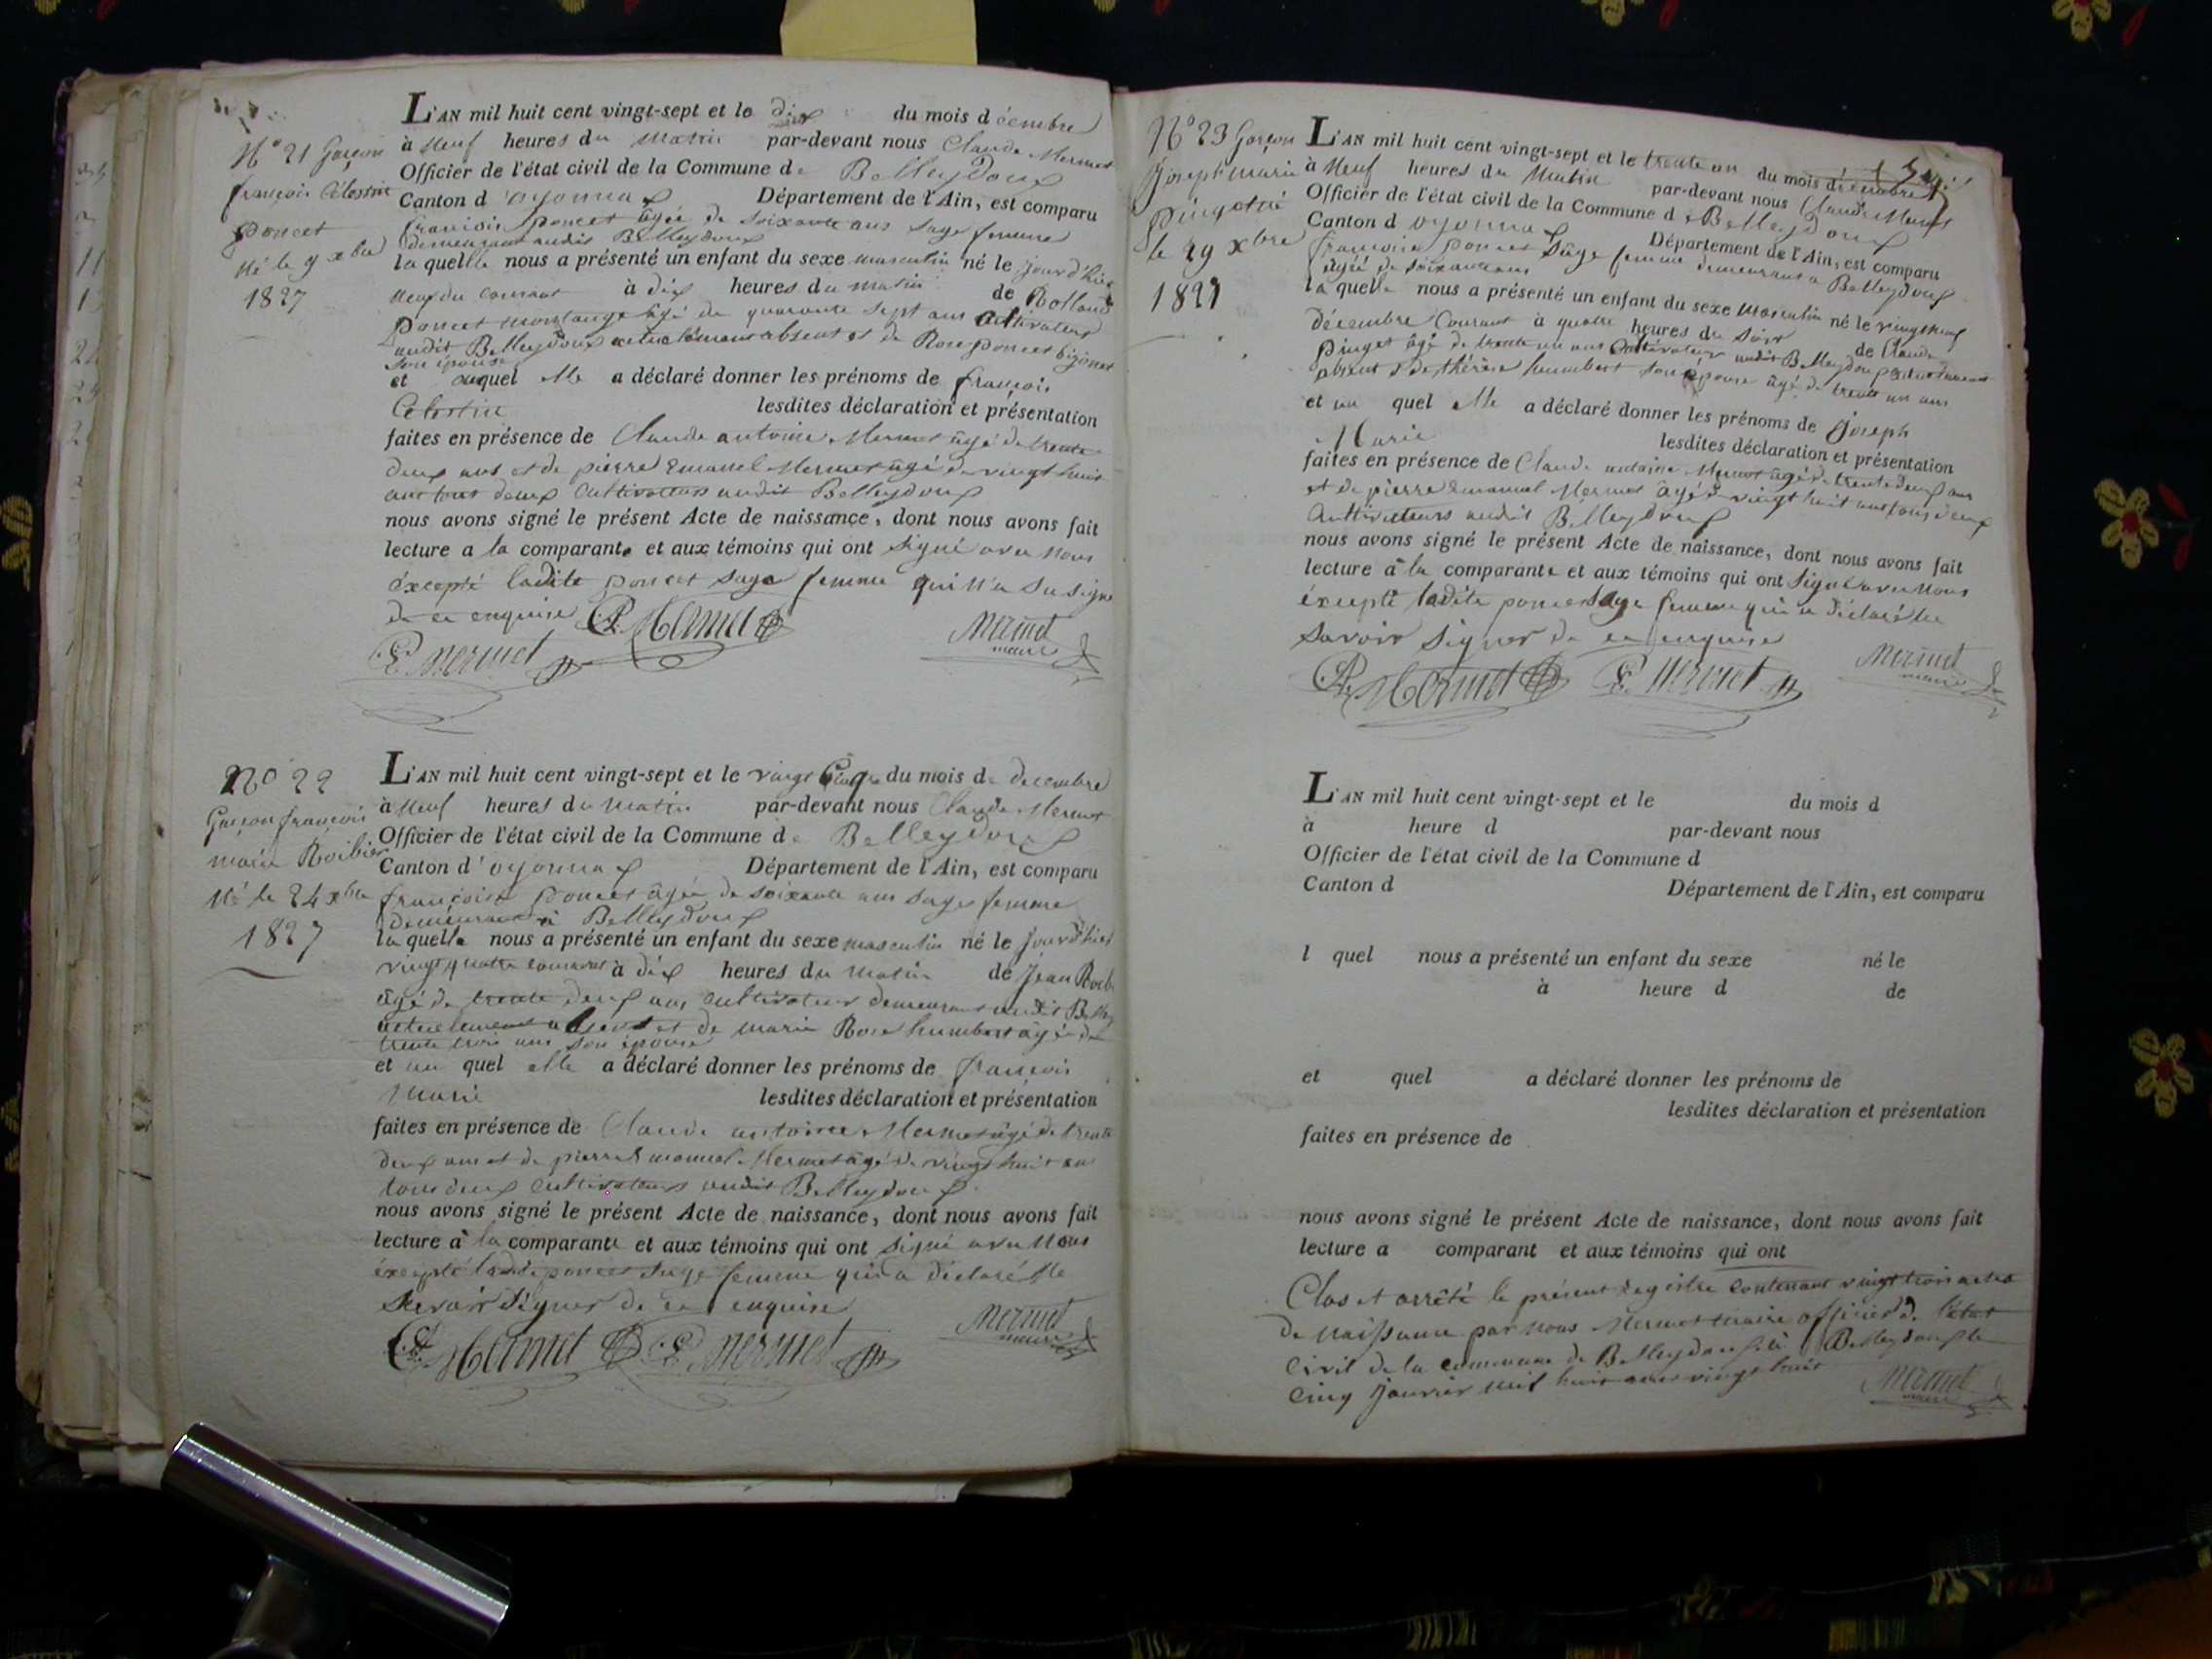 N° 21 Garçon
françois Célestin
poncet
Né le 9 xbre
1827
L'AN mil huit cent vingt-sept et le dix du mois décembre
à Neuf heures du Matin par-devant nous Claude Mermet
Officier de l'état civil de la Commune de Belleydoux
Canton d'oyonnax Département de l'Ain, est comparu
françoise poncet âgée de soixante ans sage femme
demeurant audit Belleydoux
la quelle nous a présenté un enfant du sexe masculin né le jour d'hier
neuf du courant à dix heures du matin de Rolland
poncet montange âgé de quarante sept ans cultivateur
audit Belleydoux actuelement absent et de Rose poncet
son épouse
et auquel elle a déclaré donner les prénoms de françois
Célestin lesdites déclaration et présentation
faites en présence de Claude antoine Mermet âgé de trente
deux ans et de pierre Emanuel Mermet âgé de vingt huit
ans tous deux cultivateurs audit Belleydoux
nous avons signé le présent Acte de naissance, dont nous avons fait
lecture a la comparante et aux témoins qui ont signé avec Nous
éxcepté ladite poncet sage femme qui n'a su signé
de ce enquise
Mermet
Mermet
maire
P. E. Mermet
N° 22
Garçon françois
marie Roibier
Né le 24 xbre
1827
L'AN mil huit cent vingt-sept et le vingt Cinq du mois de decembre
à Neuf heures du matin par-devant nous Claude Mermet
Officier de l'état civil de la Commune de Belleydoux
Canton d'oyonnax Département de l'Ain, est comparu
françoise poncet âgée de soixante ans sage femme
demeurant à Belleydoux
la quelle nous a présenté un enfant du sexe masculin né le jour d'hier
vingt quatre courant à dix heures du matin de Jean
âgé de trente deux ans, cultivateur demeurant audit
actuelement absent et de marie Rose humbert âgé de
trente trois ans son épouse
et au quel elle a déclaré donner les prénoms de françois
Marie lesdites déclaration et présentation
faites en présence de Claude antoine Mermet âgé de trente
deux ans et de pierre Emanuel Mermet âgé de vingt huit an
tous deux cultivateurs audit Belleydoux
nous avons signé le présent Acte de naissance, dont nous avons fait
lecture à la comparante et aux témoins qui ont signé avec Nous
éxcepté ladite poncet sage femme qui a déclaré Ne
savoir signer de ce enquise
Mermet
P. E. Mermet
Mermet
maire
N° 23 Garçon
Joseph Marie
pinget né
le 29 xbre
1827
L'AN mil huit cent vingt-sept et le trente un du mois décembre
à Neuf heures du Matin par-devant nous Claude Mermet
Officier de l'état civil de la Commune de Belleydoux
Canton d oyonnax Département de l'Ain, est comparu
françoise poncet sage femme demeurant a Belleydoux
âgée de soixante ans
la quelle nous a présenté un enfant du sexe masculin né le vingt neuf
décembre Courant à quatre heures du soir de Claude
pinget âgé de trente un ans cultivateur audit Belleydoux actuelement
absent et de thérèse humbert son épouse âgé de trente un ans
et au quel elle a déclaré donner les prénoms de Joseph
Marie lesdites déclaration et présentation
faites en présence de Claude antoine Mermet âgé de trente deux ans
et de pierre Emanuel Mermet âgé de vingt huit ans tous deux
Cultivateurs audit Belleydoux
nous avons signé le présent Acte de naissance, dont nous avons fait
lecture à la comparante et aux témoins qui ont signé avec Nous
éxcepté ladite poncet sage femme qui a déclaré Ne
savoir signer de ce enquise
Mermet
P. E. Mermet
Mermet
maire
L'AN mil huit cent vingt-sept et le du mois d
à heure d par-devant nous
Officier de l'état civil de la Commune d
Canton d Département de l'Ain, est comparu
l quel nous a présenté un enfant du sexe né le
à heure d de
et quel a déclaré donner les prénoms de
lesdites déclaration et présentation
faites en présence de
nous avons signé le présent Acte de naissance, dont nous avons fait
lecture a comparant et aux témoins qui ont
Clos et arrêté le présent registre contenant vingt trois actes
de Naissance par nous Mermet maire officier de l'état
civil de la commune de Belleydoux à Belleydoux le
cinq janvier mil huit cent vingt huit
Mermet
maire